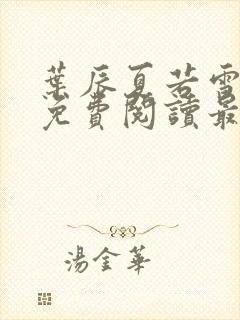 葉辰夏若雪
免費閱讀最
湯金華